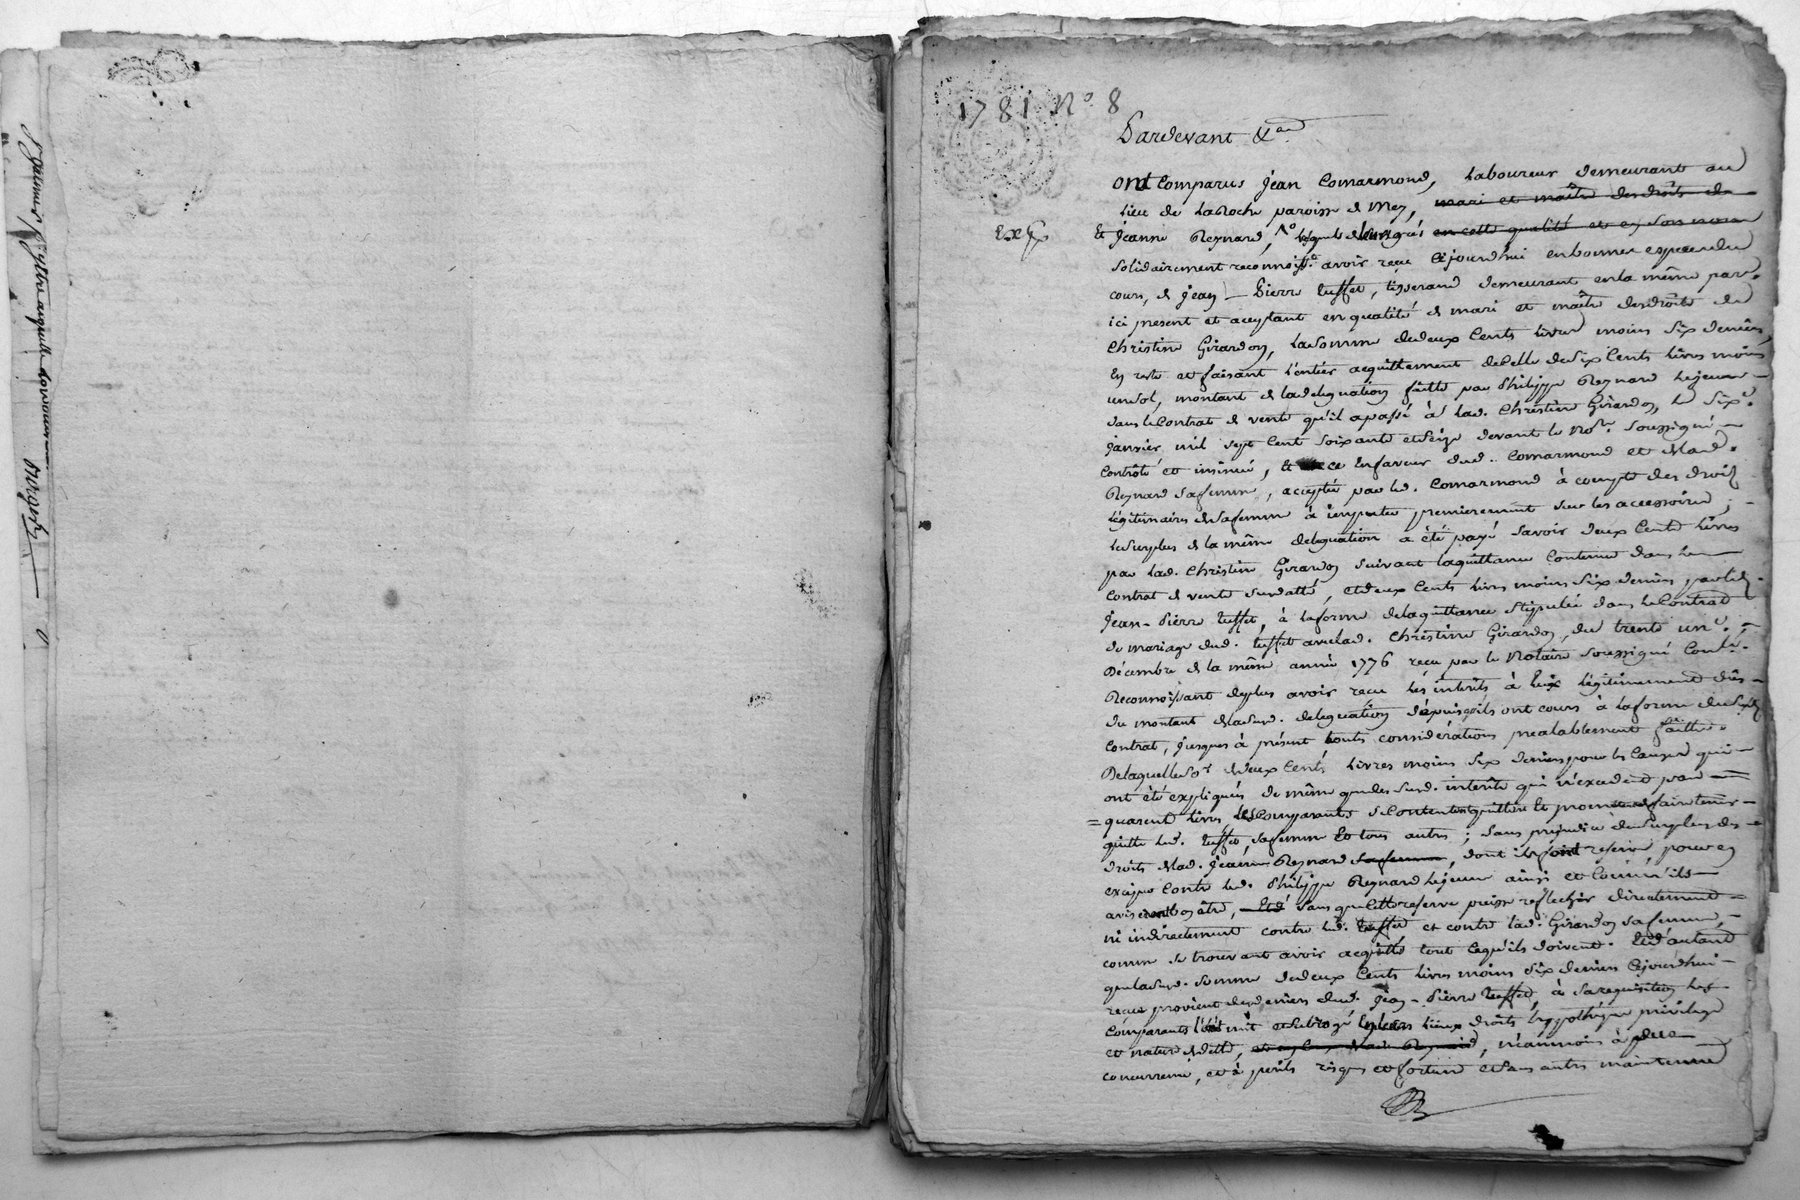 1781 N.o 8
Pardevant &a
ont Comparus Jean Comarmond, Laboureur demeurant au
Lieu de LaRoche paroisse de Mey, mari et maître des droits de
Ex
Et Jeanne Reynard, en cette qualité et en son nom
Solidairement reconnoisst. avoir reçu Cejourd'hui en bonnes especes du
cours, de Jean-Pierre tuffet, tisserand demeurant en la même par.
ici present et aceptant en qualité de mari et maître des droits de
Christine Girardon, la Somme de deux Cents livres moins Six deniers,
En reste et faisant l'entier acquittement de Celle de Six Cents livres moins
un Sol, montant de la deleguation faitte par Philippe Reynard Lejeune
dans le Contrat de vente qu'il a passé à lad. Christine Girardon, le Sixe.
Janvier mil Sept Cent Soixante et Seize devant le Nore. Soussigné
Contrôlé et insinué, Et ce En faveur dud. Comarmond et de lad.
Reynard Sa femme, aceptée par led. Comarmond à compte des droits
légitimaires de Sa femme à imputer premierement Sur les accessoires;
Le Surplus de la même deleguation a été payé Savoir deux Cents livres
par lad. Christine Girardon Suivant la quittance Contenue dans le
Contrat de vente Sus datté, et deux Cents livres moins Six deniers par led.
Jean-Pierre tuffet, à la forme de la quittance Stipulée dans le Contrat
de mariage dud. tuffet avec lad. Christine Girardon, du trente une.
Décembre de la même année 1776 reçu par le Notaire Soussigné Conlé.
Reconnoissant de plus avoir reçu les intérêts à Eux légitimement dûs
du montant de la Susd. deleguation depuis qu'ils ont cours à la forme du Susd.
Contrat, Jusques à présent touts considérations prealablement faitte.
De laquelle So.e de deux Cents livres moins Six deniers pour les Causes qui
ont été expliquées de même que des Susd. intérêts qui n'excedent pas
quarente livres, les Comparants Se Contentent quittent Et promettent faire tenir
quitte led. tuffet, Sa femme Et tous autres; Sans préjudice du Surplus des
droits de lad. Jeanne Reynard Sa femme, dont ils font reserve pour en
exciper Contre led. Philippe Reynard Lejeune ainsi et Comm'ils
aviseront bon être, Et Sans que Cette reserve puisse reflechir directement
ni indirectement contre led. tuffet et contre lad. Girardon Sa femme,
comme Se trouvant avoir acquitté tout Ce qu'ils doivent. Et d'autant
que la Susd. Somme de deux Cents livres moins Six deniers Cejourd'hui
reçue provient des deniers dud. Jean-Pierre tuffet, à Sa requisition les
Comparants l'ont mit et Subrogé En leurs lieux droits hyppothéque privilege
et nature de dette, , néanmois à
concurrence, et à perils risques et fortune et Sans autre maintenue